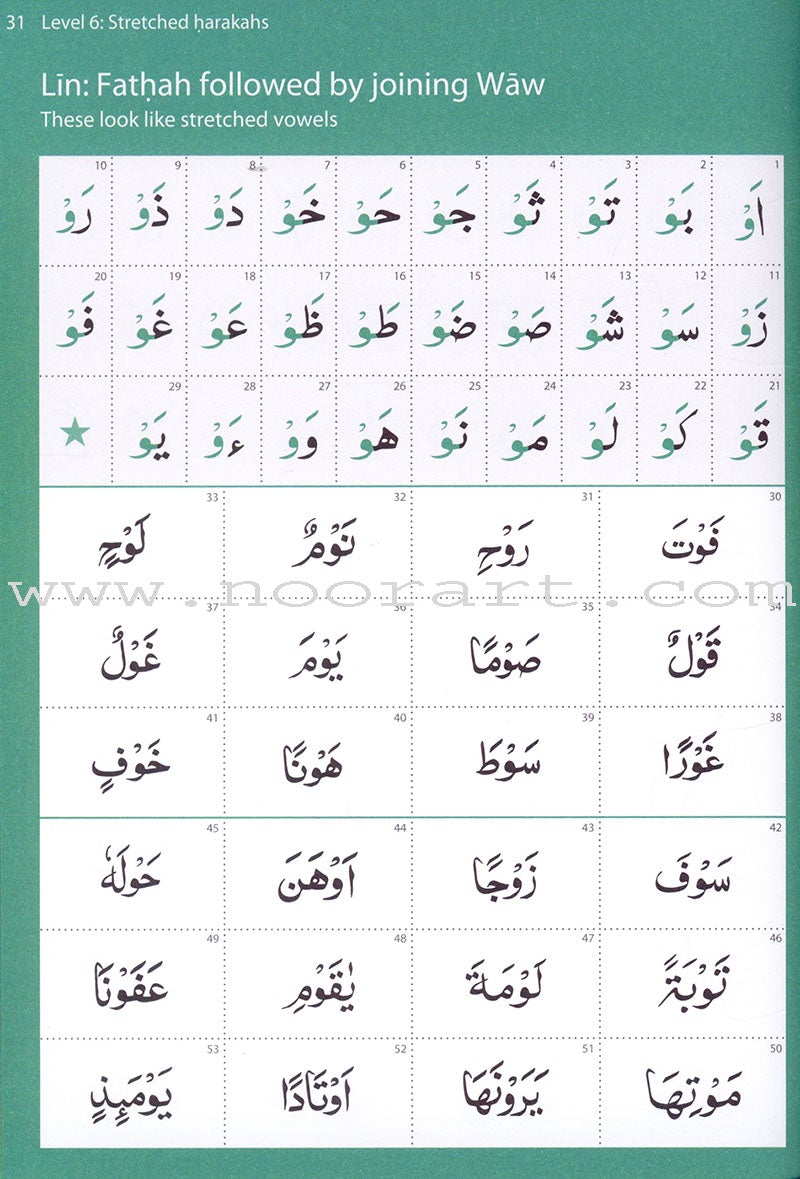 31 Level 6: Stretched ḥarakahs
Līn: Fatḥah followed by joining Wāw
These look like stretched vowels
1 2 3 4 5 6 7 8 9 10
اَوْ بَوْ تَوْ ثَوْ جَوْ حَوْ خَوْ دَوْ ذَوْ رَوْ
11 12 13 14 15 16 17 18 19 20
زَوْ سَوْ شَوْ صَوْ ضَوْ طَوْ ظَوْ عَوْ غَوْ فَوْ
21 22 23 24 25 26 27 28 29
قَوْ كَوْ لَوْ مَوْ نَوْ هَوْ وَوْ ءَوْ يَوْ
30 31 32 33
فَوْتَ رَوْحِ نَوْمٌ لَوْحٍ
www.noorart.com
34 35 36 37
قَوْلٌ صَوْمًا يَوْمَ غَوْلٌ
38 39 40 41
غَوْرًا سَوْطَ هَوْنًا خَوْفٍ
42 43 44 45
سَوْفَ زَوْجًا اَوْهَنَ حَوْلَهٗ
46 47 48 49
تَوْبَةً لَوْمَةَ يٰقَوْمِ عَفَوْنَا
50 51 52 53
مَوْتِهَا يَرَوْنَهَا اَوْتَادًا يَوْمَئِذٍ